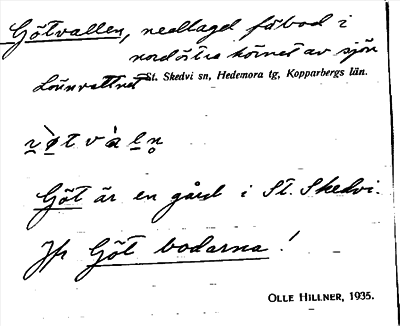 Götvallen, nedlagd fäbod i
nordöstra hörnet av sjön
St. Skedvi sn, Hedemora tg, Kopparbergs län.
Göt är en gård i St. Skedvi.
Jfr Götbodarna!
OLLE HILLNER, 1935.